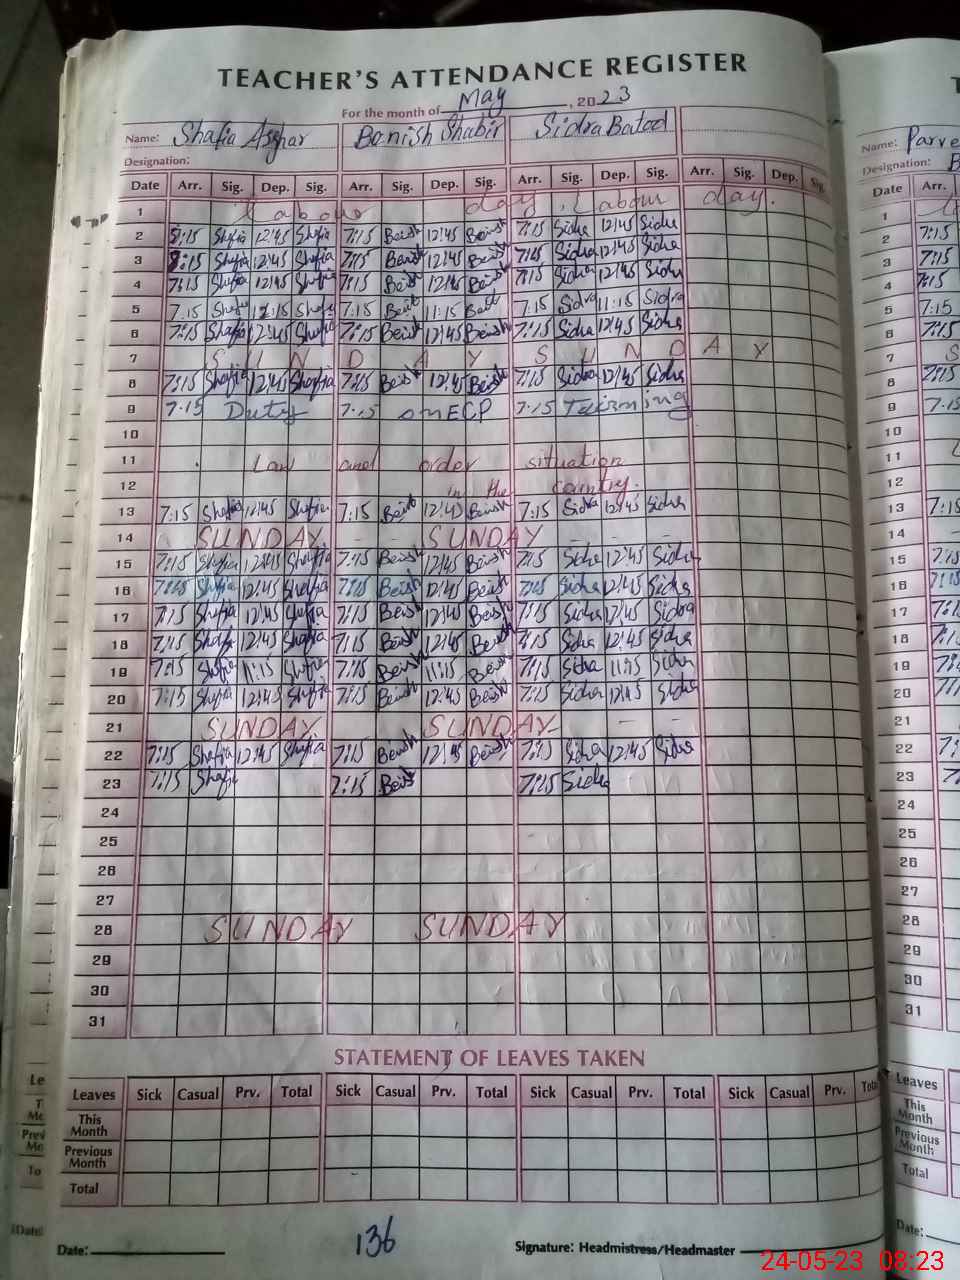 TEACHER'S ATTENDANCE REGISTER
For the month of May, 2023
Name: Shafia Asghar Banish Shabir Sidra Batool
Designation:
Date Arr. Sig. Dep. Sig. Arr. Sig. Dep. Sig. Arr. Sig. Dep. Sig. Arr. Sig. Dep. Sig.
1 Labour day, Labour day.
2 8:15 Shafia 12:45 Shafia 7:15 Beish 12:45 Beish 7:15 Sidra 12:45 Sidra
3 8:15 Shafia 12:45 Shafia 7:15 Beish 12:45 Beish 7:15 Sidra 12:45 Sidra
4 7:15 Shafia 12:45 Shafia 7:15 Beish 12:45 Beish 7:15 Sidra 12:45 Sidra
5 7:15 Shafia Shafia 7:15 Beish 11:15 Beish 7:15 Sidra 11:15 Sidra
6 7:15 Shafia 12:45 Shafia 7:15 Beish 12:45 Beish 7:15 Sidra 12:45 Sidra
7 SUNDAY SUNDAY
8 7:15 Shafia 12:45 Shafia 7:15 Beish 12:45 Beish 7:15 Sidra 12:45 Sidra
9 7:15 Duty 7:15 on ECP 7:15
10
11 Law and order situation
12 in the country.
13 7:15 Shafia 12:45 Shafia 7:15 Beish 12:45 Beish 7:15 Sidra 12:45 Sidra
14 SUNDAY SUNDAY
15 7:15 Shafia 12:45 Shafia 7:15 Beish 12:45 Beish 7:15 Sidra 12:45 Sidra
16 7:15 Shafia 12:45 Shafia 7:15 Beish 12:45 Beish 7:15 Sidra 12:45 Sidra
17 7:15 Shafia 12:45 Shafia 7:15 Beish 12:45 Beish 7:15 Sidra 12:45 Sidra
18 7:15 Shafia 12:45 Shafia 7:15 Beish 12:45 Beish 7:15 Sidra 12:45 Sidra
19 7:15 Shafia 11:15 Shafia 7:15 Beish 11:15 Beish 7:15 Sidra 11:15 Sidra
20 7:15 Shafia 12:45 Shafia 7:15 Beish 12:45 Beish 7:15 Sidra 12:45 Sidra
21 SUNDAY SUNDAY
22 7:15 Shafia 12:45 Shafia 7:15 Beish 12:45 Beish 7:15 Sidra 12:45 Sidra
23 7:15 Shafi 7:15 Beish 7:15 Sidra
24
25
26
27
28 SUNDAY SUNDAY
29
30
31
STATEMENT OF LEAVES TAKEN
Leaves Sick Casual Prv. Total Sick Casual Prv. Total Sick Casual Prv. Total Sick Casual Prv. Total
This Month
Previous Month
Total
136
Date: Signature: Headmistress/Headmaster
Name: Parve
Designation: B
Date Arr.
1
2 7:15
3 7:15
4 7:15
5 7:15
6 7:15
7 S
8 7:15
9
10
11
12
13 7:15
14
15
16
17
18
19
20
21
22
23
24
25
26
27
28
29
30
31
Leaves
This Month
Previous Month
Total
Date:
24-05-23 08:23